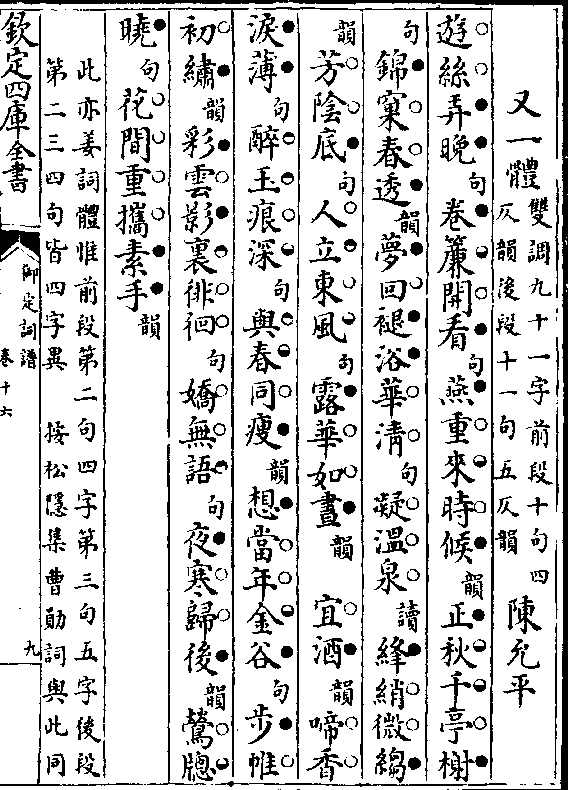 又一體
雙調九十一字前段十句四
仄韻後段十一句五仄韻
陳允平
遊絲弄晚句卷簾開看句燕重來時候韻正秋千亭榭
句錦窠春透韻夢回褪浴華清句凝溫泉讀絳綃微縐
韻芳陰底句人立東風句露華如晝韻宜酒韻啼香
淚薄句醉玉痕深句與春同瘦韻想當年金谷句步帷
初繡韻彩雲影裏徘徊句嬌無語句夜寒歸後韻鶯牕
曉句花間重攜素手韻
此亦姜詞體惟前段第二句四字第三句五字後段
第二三四句皆四字異 按松隱集曹勛詞與此同
欽定四庫全書
御定詞譜
卷十六
九